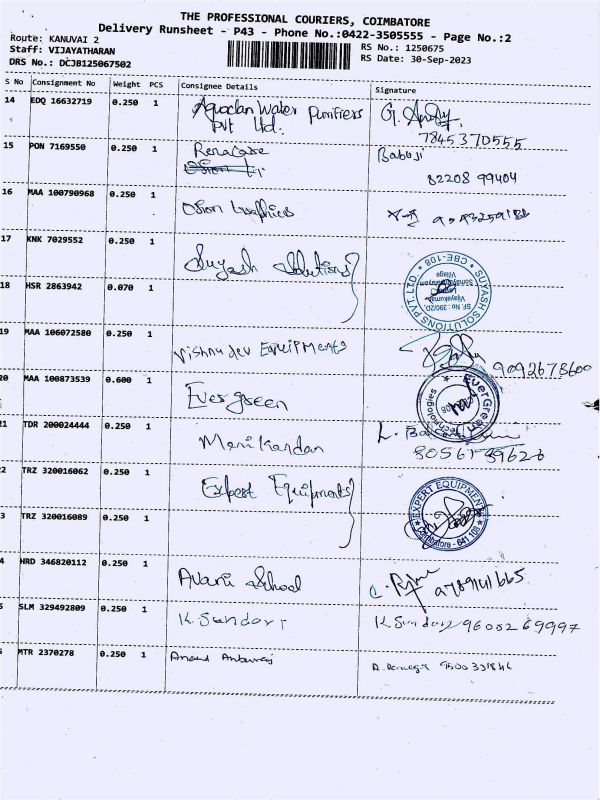 THE PROFESSIONAL COURIERS, COIMBATORE
Delivery Runsheet - P43 - Phone No.:0422-3505555 - Page No.:2
Route: KANUVAI 2
Staff: VIJAYATHARAN
DRS No.: DCJB125067502
RS No.: 1250675
RS Date: 30-Sep-2023
S No Consignment No Weight PCS Consignee Details Signature
14 EDQ 16632719 0.250 1 Aquaclan Water Purifiers
Pvt Ltd.
7845370555
15 PON 7169550 0.250 1 Renacare Babuji
82208 99404
16 MAA 100790968 0.250 1 Orion Graphics
17 KNK 7029552 0.250 1 Suyash Solutions
SUYASH SOLUTIONS PVT. LTD. CBE-108
SF. No : 390/2D
Village
18 HSR 2863942 0.070 1
19 MAA 106072580 0.250 1 Vishnu dev Equipments
9092678600
20 MAA 100873539 0.600 1 Evergreen
EverGreen Technologies
21 TDR 200024444 0.250 1 Manikandan
22 TRZ 320016062 0.250 1 Expert Equipments
EXPERT EQUIPMENT
Coimbatore - 641 108
3 TRZ 320016089 0.250 1
4 HRD 346820112 0.250 1 Avani School
5 SLM 329492809 0.250 1 K. Sundari K. Sundari 9605269997
MTR 2370278 0.250 1 Anand Anburaj
9500331846